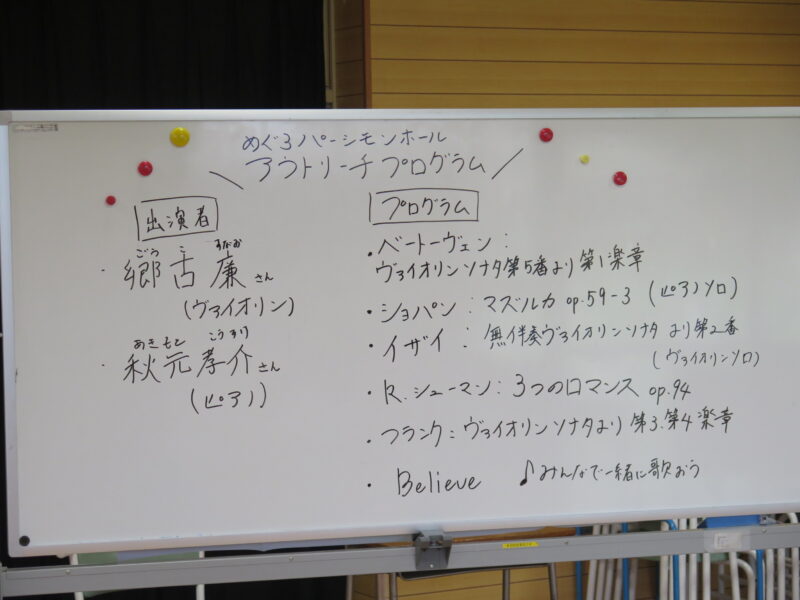 めぐろパーシモンホール
アウトリーチプログラム
出演者
ごう こ すなお
・郷古 廉さん
(ヴァイオリン)
あきもと こうすけ
・秋元孝介さん
(ピアノ)
プログラム
・ベートーヴェン：
ヴァイオリンソナタ第5番より第1楽章
・ショパン：マズルカ op.59-3 (ピアノソロ)
・イザイ：無伴奏ヴァイオリンソナタ より第2番
(ヴァイオリンソロ)
・R.シューマン：3つのロマンス op.94
・フランク：ヴァイオリンソナタより 第3.第4楽章
・Believe ♪みんなで一緒に歌おう